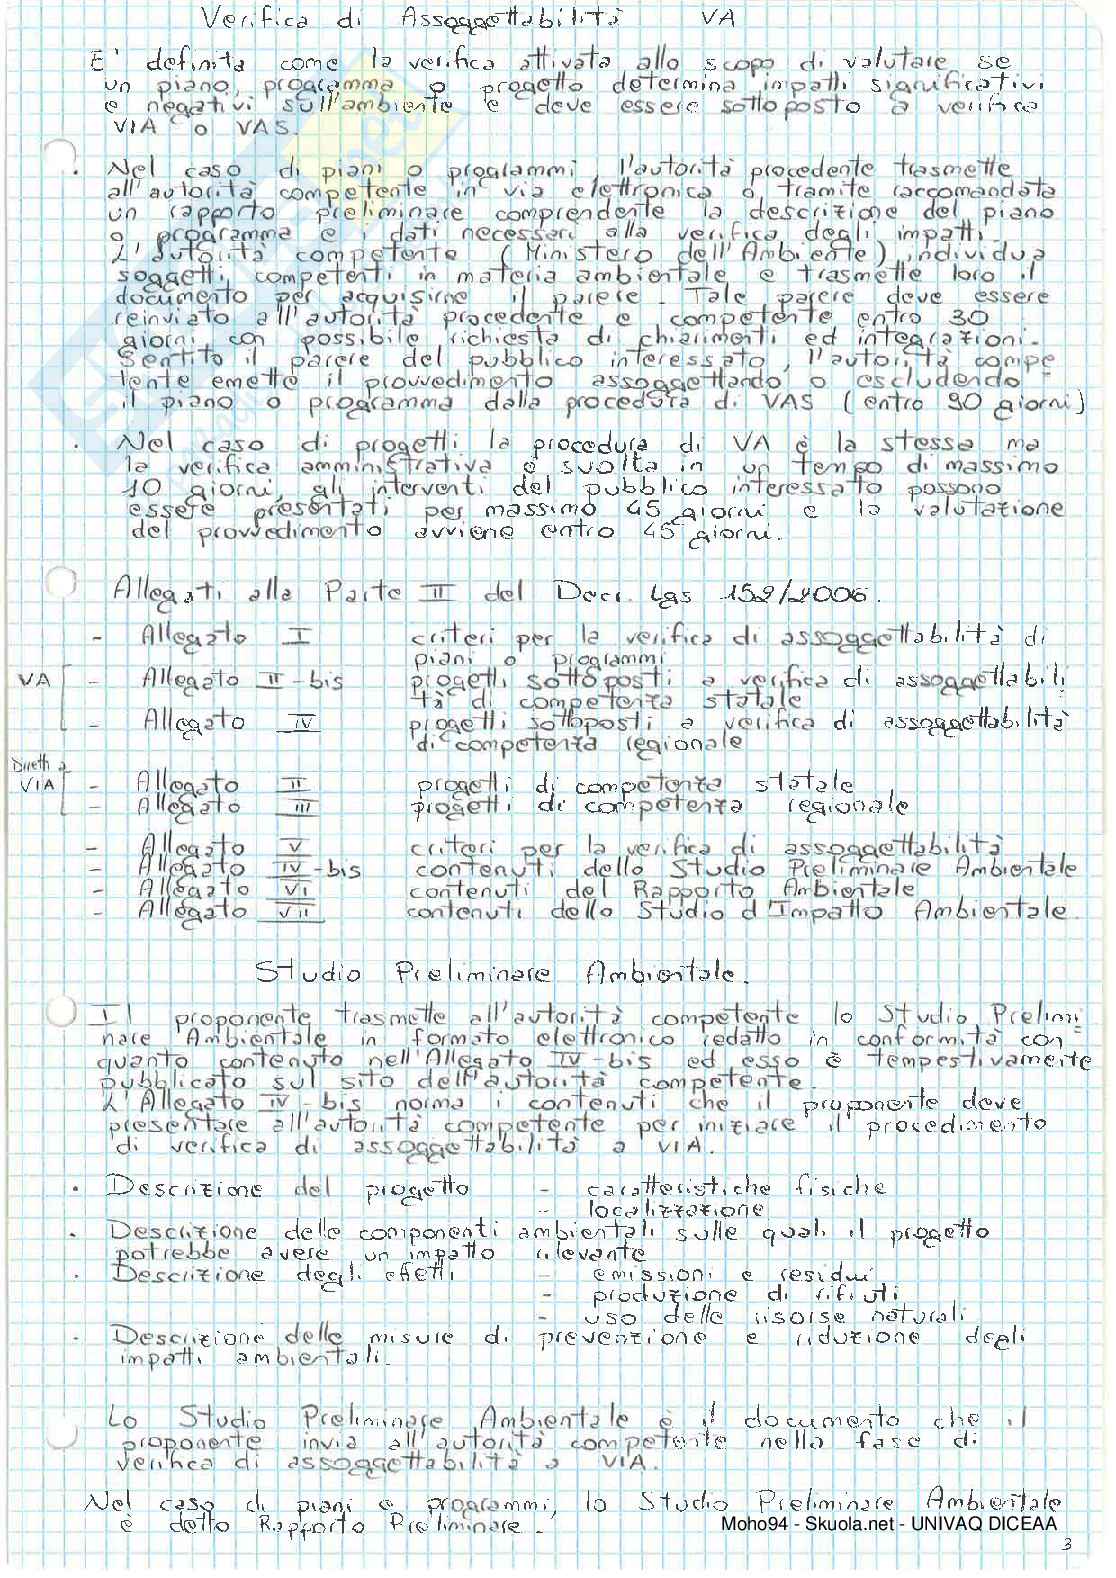 Verifica di Assoggettabilità VA
E' definita come la verifica attivata allo scopo di valutare se
un piano, programma o progetto determina impatti significativi
e negativi sull'ambiente e deve essere sottoposto a verifica
VIA o VAS.
· Nel caso di piani o programmi, l'autorità procedente trasmette
all'autorità competente in via elettronica o tramite raccomandata
un rapporto preliminare comprendente la descrizione del piano
o programma e i dati necessari alla verifica degli impatti.
L'autorità competente (Ministero dell'Ambiente), individua
soggetti competenti in materia ambientale e trasmette loro il
documento per acquisirne il parere. Tale parere deve essere
reinviato all'autorità procedente e competente entro 30
giorni, con possibile richiesta di chiarimenti ed integrazioni.
Sentito il parere del pubblico interessato, l'autorità compe
tente emette il provvedimento assoggettando o escludendo
il piano o programma dalla procedura di VAS (entro 90 giorni)
· Nel caso di progetti la procedura di VA è la stessa ma
la verifica amministrativa è svolta in un tempo di massimo
10 giorni, gli interventi del pubblico interessato possono
essere presentati per massimo 45 giorni e la valutazione
del provvedimento avviene entro 45 giorni.
Allegati alla Parte II del Decr. Lgs 152/2006.
- Allegato I criteri per la verifica di assoggettabilità di
piani o programmi
VA - Allegato II-bis progetti sottoposti a verifica di assoggettabili
tà di competenza statale
- Allegato IV progetti sottoposti a verifica di assoggettabilità
di competenza regionale
Diretti a
VIA - Allegato II progetti di competenza statale
- Allegato III progetti di competenza regionale
- Allegato V criteri per la verifica di assoggettabilità
- Allegato IV-bis contenuti dello Studio Preliminare Ambientale
- Allegato VI contenuti del Rapporto Ambientale
- Allegato VII contenuti dello Studio d'Impatto Ambientale.
Studio Preliminare Ambientale.
Il proponente trasmette all'autorità competente lo Studio Prelimi
nare Ambientale in formato elettronico redatto in conformità con
quanto contenuto nell'Allegato IV-bis ed esso è tempestivamente
pubblicato sul sito dell'autorità competente.
L'Allegato IV-bis norma i contenuti che il proponente deve
presentare all'autorità competente per iniziare il procedimento
di verifica di assoggettabilità a VIA.
· Descrizione del progetto - caratteristiche fisiche
- localizzazione
· Descrizione delle componenti ambientali sulle quali il progetto
potrebbe avere un impatto rilevante
· Descrizione degli effetti - emissioni e residui
- produzione di rifiuti
- uso delle risorse naturali
· Descrizione delle misure di prevenzione e riduzione degli
impatti ambientali.
Lo Studio Preliminare Ambientale è il documento che il
proponente invia all'autorità competente nella fase di
verifica di assoggettabilità a VIA.
Nel caso di piani e programmi, lo Studio Preliminare Ambientale
è detto Rapporto Preliminare.
Moho94 - Skuola.net - UNIVAQ DICEAA
3